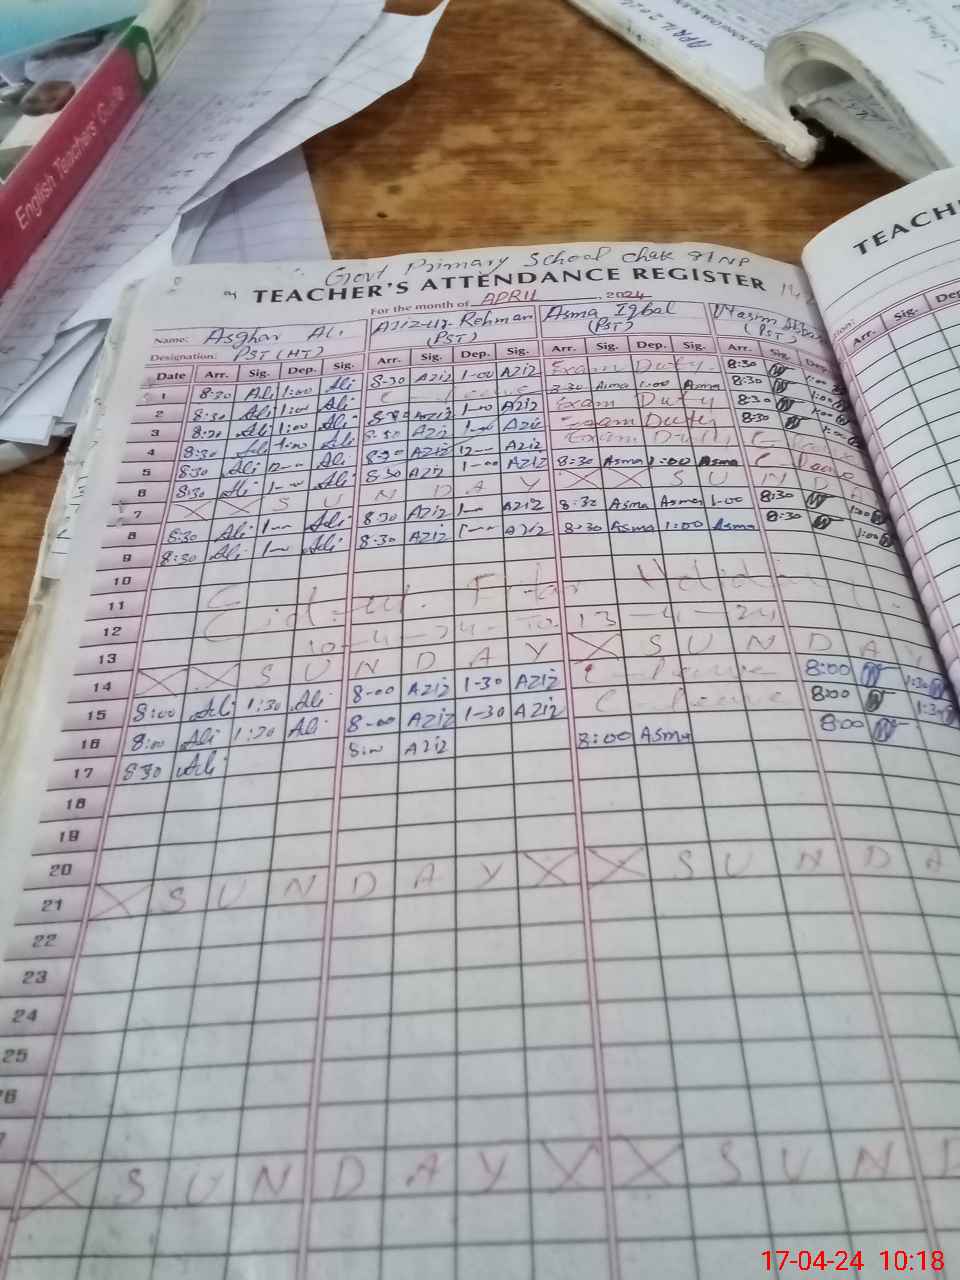 English Teachers' Guide
APRIL 2024
Govt Primary School chak 81NP
TEACHER'S ATTENDANCE REGISTER
TEACH
For the month of APRIL, 2024
Name: Asghar Ali Aziz-Ur-Rehman Asma Iqbal
Designation: PST (HT) (PST) (PST) (PST)
Date Arr. Sig. Dep. Sig. Arr. Sig. Dep. Sig. Arr. Sig. Dep. Sig. Arr. Sig. Dep. Arr. Sig. Dep
1 8:30 Ali 1:00 Ali 8-30 Aziz 1-00 Aziz Exam Duty 8:30 1:00
2 8:30 Ali 1:00 Ali C-leave 8:30 Asma 1:00 Asma 8:30
3 8:30 Ali 1:00 Ali 8-30 Aziz 1-00 Aziz Exam Duty 8:30 1:00
4 8:30 Ali 1:00 Ali 8-30 Aziz 1-00 Aziz Exam Duty 8:30 1:00
5 8:30 Ali 12-00 Ali 8-30 Aziz 12-00 Aziz Exam Duty C-leave
6 8:30 Ali 1-00 Ali 8-30 Aziz 1-00 Aziz 8:30 Asma 1:00 Asma C-leave
7 X X S U N D A Y X X S U N D A
8 8:30 Ali 1-00 Ali 8:30 Aziz 1-00 Aziz 8:30 Asma Asma 1-00 8:30 1:00
9 8:30 Ali 1-00 Ali 8:30 Aziz 1-00 Aziz 8:30 Asma 1:00 Asma 8:30 1:00
10
11 Eid-ul-Fitar Holidays
12 10-4-24 To 13-4-24
13
14 X X S U N D A Y X S U N D A Y
15 8:00 Ali 1:30 Ali 8-00 Aziz 1-30 Aziz C-leave 8:00 1:30
16 8:00 Ali 1:30 Ali 8-00 Aziz 1-30 Aziz C-leave 8:00 1:30
17 8:30 Ali 8:00 Aziz 8:00 Asma 8:00
18
19
20
21 X S U N D A Y X X S U N D A
22
23
24
25
X S U N D A Y X X S U N
17-04-24 10:18